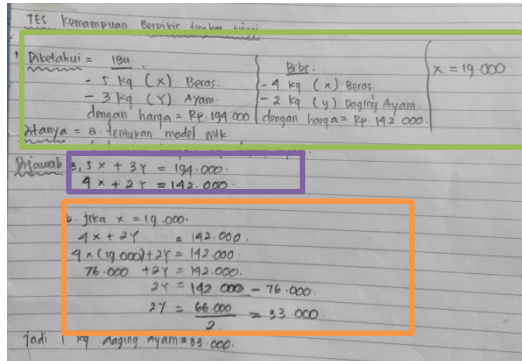 TES Kemampuan Berpikir tingkat tinggi
Diketahui = IBU
- 5 kg (x) Beras.
- 3 kg (Y) Ayam
dengan harga = Rp. 194 000
Bibi.
- 4 kg (x) Beras.
- 2 kg (y) Daging Ayam.
dengan harga = Rp. 142 000.
x = 19.000
Ditanya = a. tentukan model mtk
Dijawab a, 5x + 3Y = 194.000.
4x + 2Y = 142.000.
b. jika x = 19.000.
4x + 2Y = 142.000.
4 x (19 000) + 2Y = 142.000.
76.000 + 2Y = 142.000.
2Y = 142 000 - 76.000.
2Y = 66.000 / 2 = 33.000
jadi 1 kg daging ayam = 33.000.